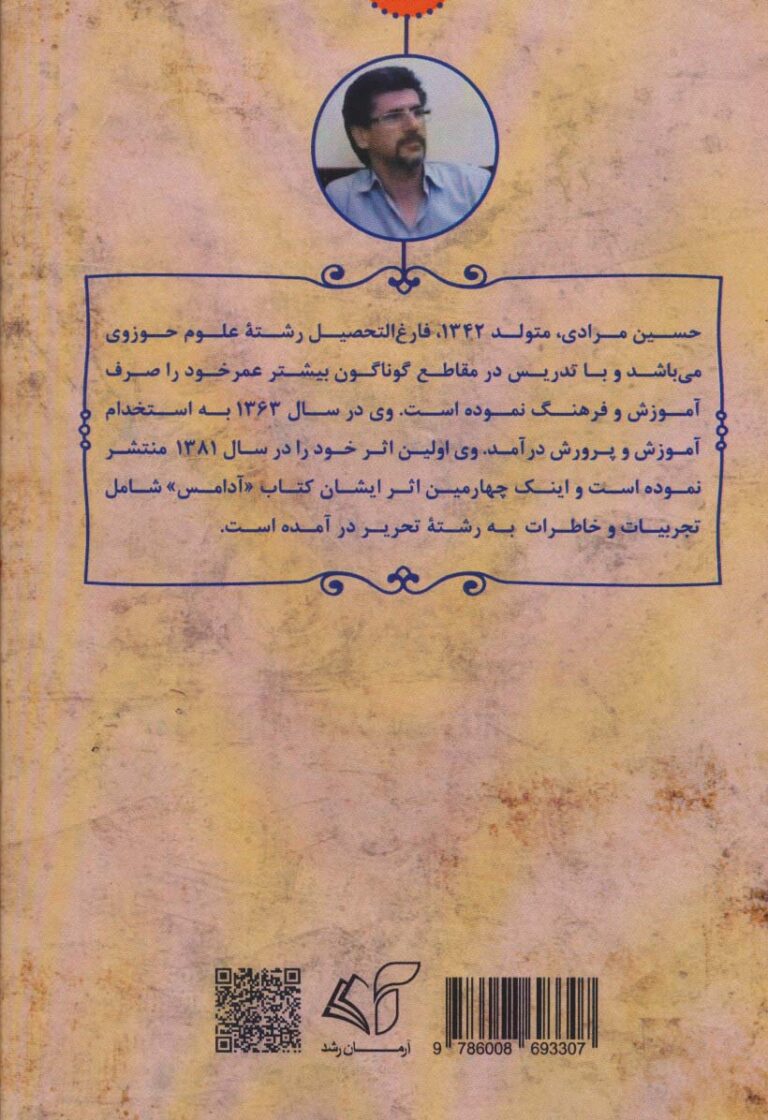 حسین مرادی، متولد ۱۳۴۲، فارغ‌التحصیل رشتۀ علوم حوزوی
می‌باشد و با تدریس در مقاطع گوناگون بیشتر عمرخود را صرف
آموزش و فرهنگ نموده است. وی در سال ۱۳۶۳ به استخدام
آموزش و پرورش درآمد. وی اولین اثر خود را در سال ۱۳۸۱ منتشر
نموده است و اینک چهارمین اثر ایشان کتاب «آدامس» شامل
تجربیات و خاطرات به رشتۀ تحریر در آمده است.
آرمان رشد
9 786008 693307